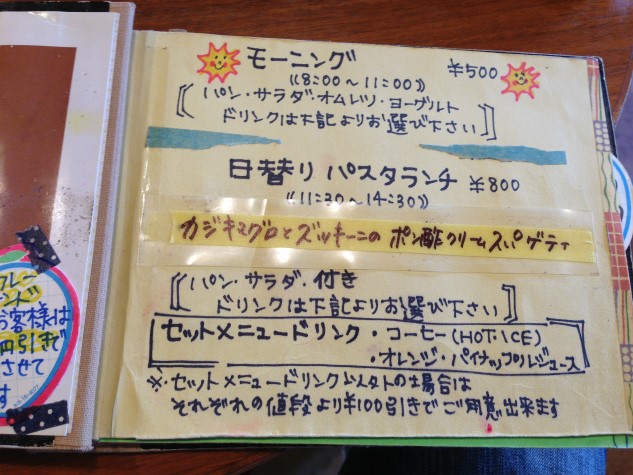 モーニング ¥500
((8:00～11:00))
パン・サラダ・オムレツ・ヨーグルト
ドリンクは下記よりお選び下さい
日替り パスタランチ ¥800
((11:30～14:30))
カジキマグロとズッキーニの ポン酢クリームスパゲティ
パン・サラダ・付き
ドリンクは下記よりお選び下さい
セットメニュードリンク・コーヒー(HOT・ICE)
・オレンジ・パイナップルジュース
※・セットメニュードリンク以外の場合は
それぞれの値段より¥100引きでご用意出来ます
お客様は
円引きで
させて
す